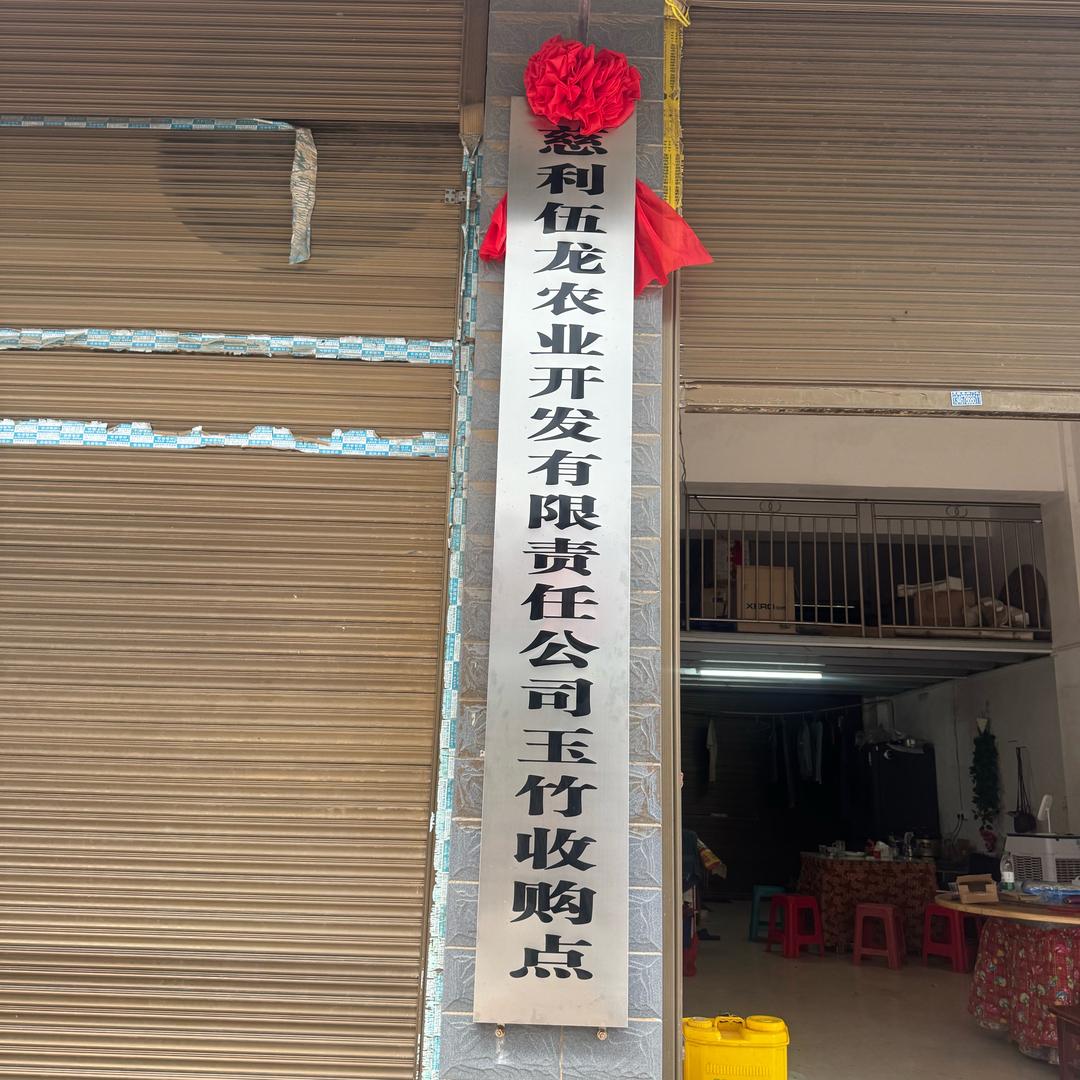 慈利伍龙农业开发有限责任公司玉竹收购点
XERO